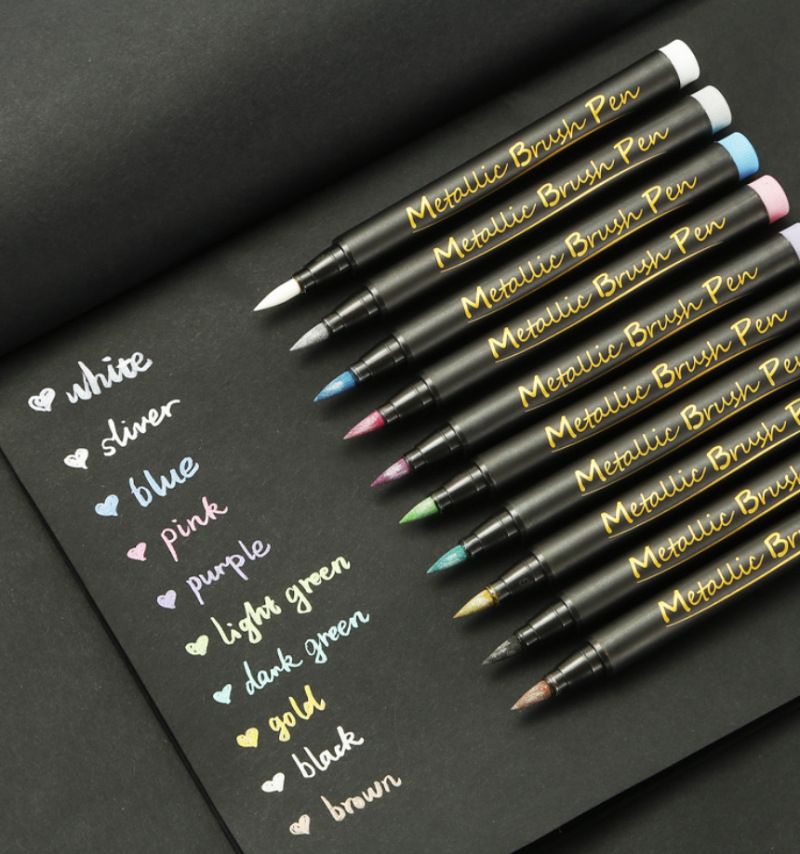 Metallic Brush Pen
Metallic Brush Pen
Metallic Brush Pen
Metallic Brush Pen
Metallic Brush Pen
Metallic Brush Pen
Metallic Brush Pen
Metallic Brush P
Metallic Brush
Metallic Br
white
sliver
blue
pink
purple
light green
dark green
gold
black
brown